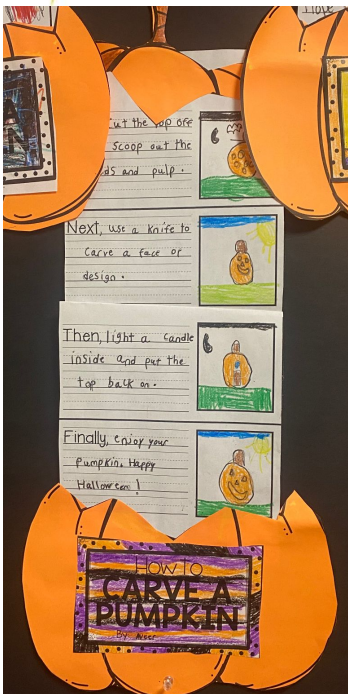 Love
cut the top off
scoop out the
ds and pulp.
Next, use a knife to
carve a face or
design.
Then, light a candle
inside and put the
top back on.
Finally, enjoy your
pumpkin. Happy
Halloween!
How to
CARVE A
PUMPKIN
By: